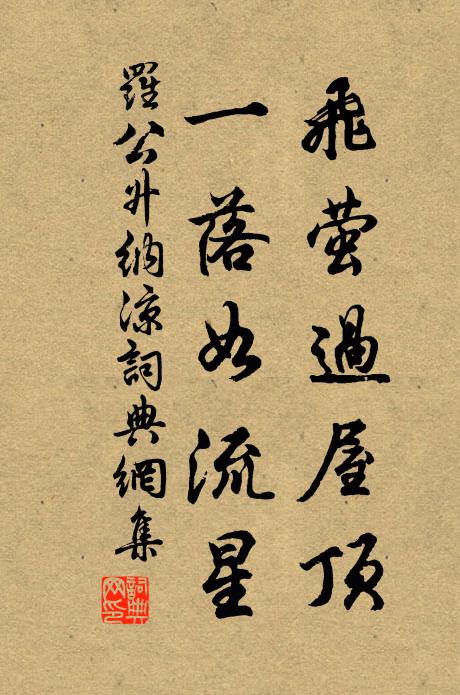 飛螢過屋頂
一落如流星
羅公升納涼詞典網集
詞典網印